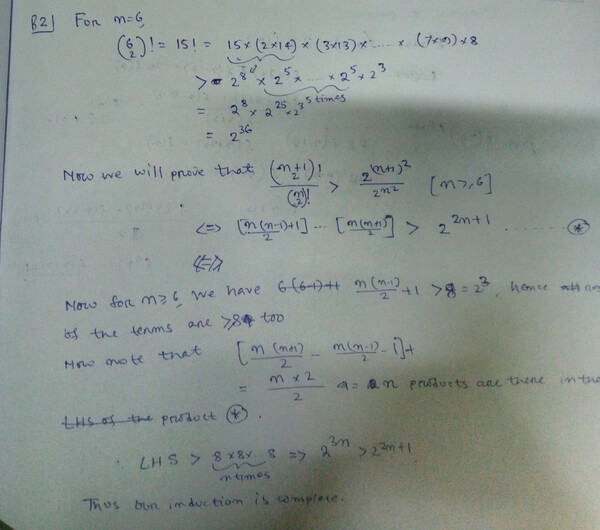 B2] For n=6,
(6 2)! = 15! = 15×(2×14)×(3×13)× .... × (7×9)×8
> 2^8 × 2^5 × .... × 2^5 × 2^3
5 times
= 2^8 × 2^25 × 2^3
= 2^36
Now we will prove that (n+1 2)! / (n 2)! > 2^(n+1)^2 / 2^n^2 [n≥6]
<=> [n(n-1)/2 + 1] ... [n(n+1)/2] > 2^2n+1 ........ (*)
Now for n≥6, we have 6(6-1)+1 n(n-1)/2 + 1 > 8 = 2^3, hence
of the terms are >8 too
Now note that [n(n+1)/2 - n(n-1)/2 - 1]+
= n×2/2 = n products are there in the
LHS of the product (*).
∴ LHS > 8×8× 8 => 2^3n > 2^2n+1.
n times
Thus our induction is complete.